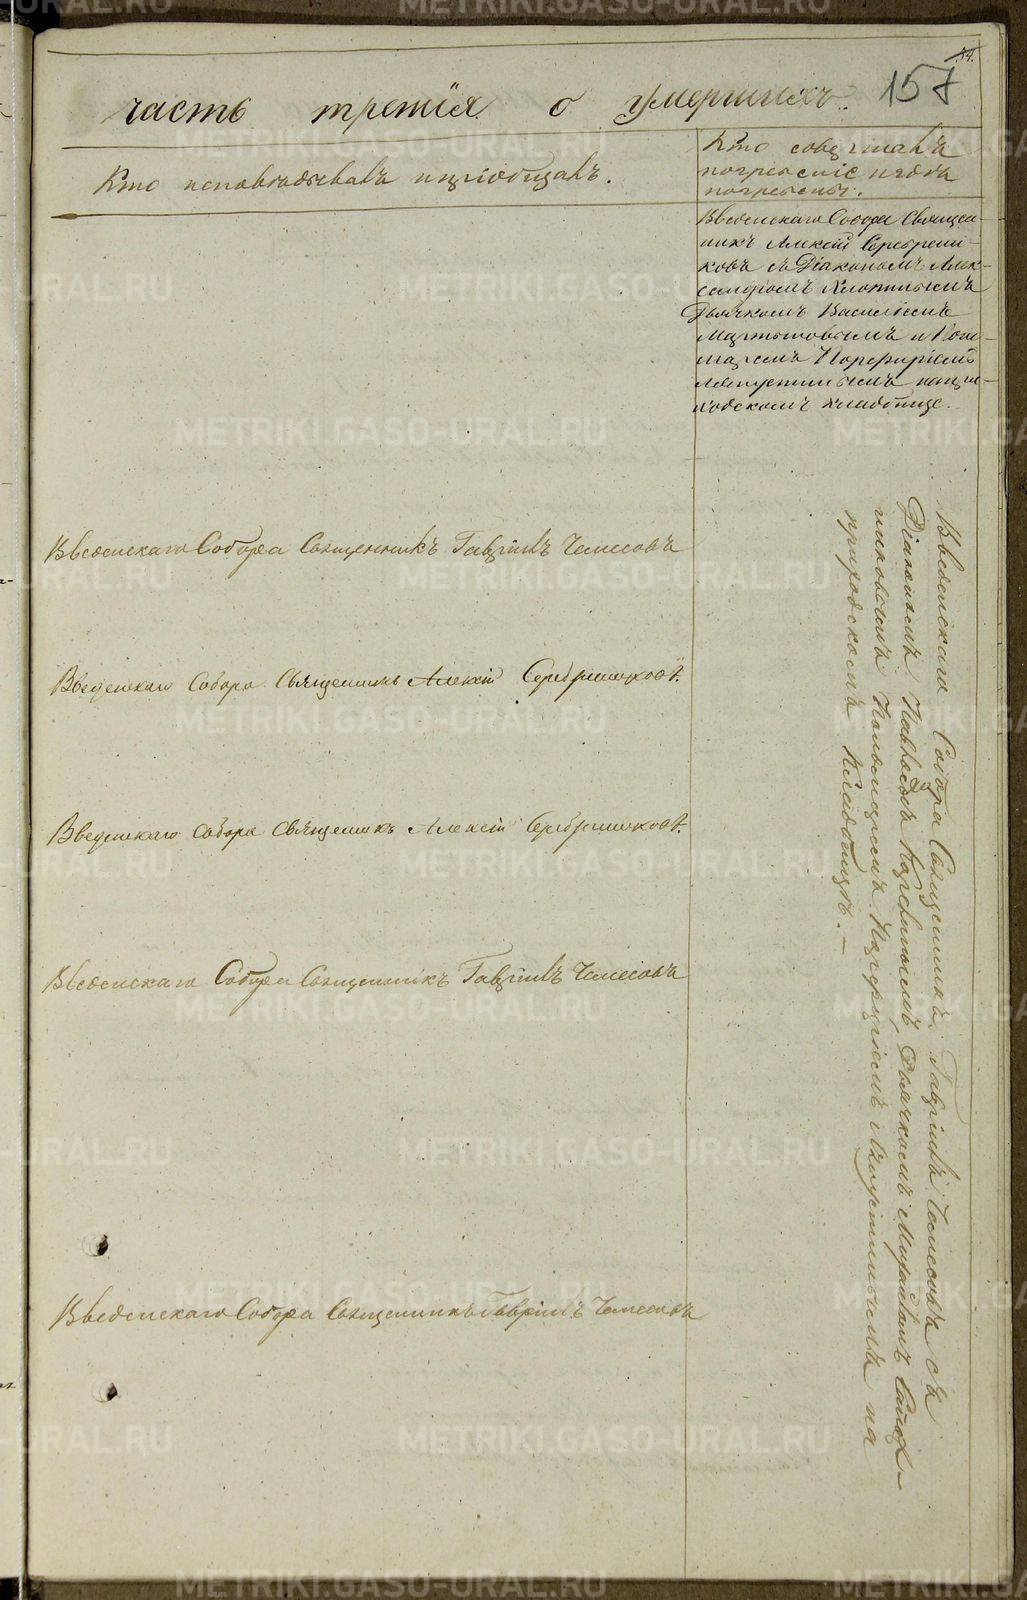 54.
157
часть третія о умершихъ.
Кто исповѣдывалъ и пріобщалъ.
Кто совершалъ
погребеніе и гдѣ
погребены.
Введенскаго Собора Священ-
никъ Алексій Серебрени-
ковъ съ Діакономъ Алек-
сандромъ
Дьячкомъ Василіемъ
Мартыновымъ и Поно-
маремъ Порфиріемъ
на при-
ходскомъ кладбище.
Введенскаго Собора Священникъ Гавріилъ Чемесовъ
Введенскаго Собора Священникъ Алексій Серебрениковъ.
Введенскаго Собора Священникъ Алексій Серебрениковъ.
Введенскаго Собора Священникъ Гавріилъ Чемесовъ
Введенскаго Собора Священникъ Гавріилъ Чемесовъ
Введенскаго Собора Священникъ Гавріилъ Чемесовъ съ
Діакономъ Павломъ Дьячкомъ Михаиломъ
Пономаремъ Порфиріемъ на
приходскомъ Кладбищѣ.—
METRIKI.GASO-URAL.RU